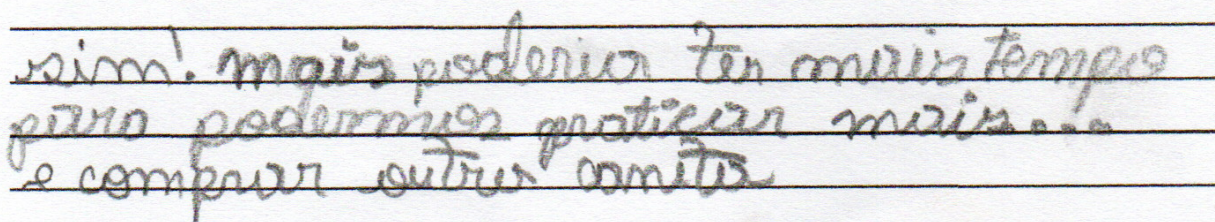 sim! mais poderia ter mais tempo
para podermos praticar mais...
e comprar outra caneta